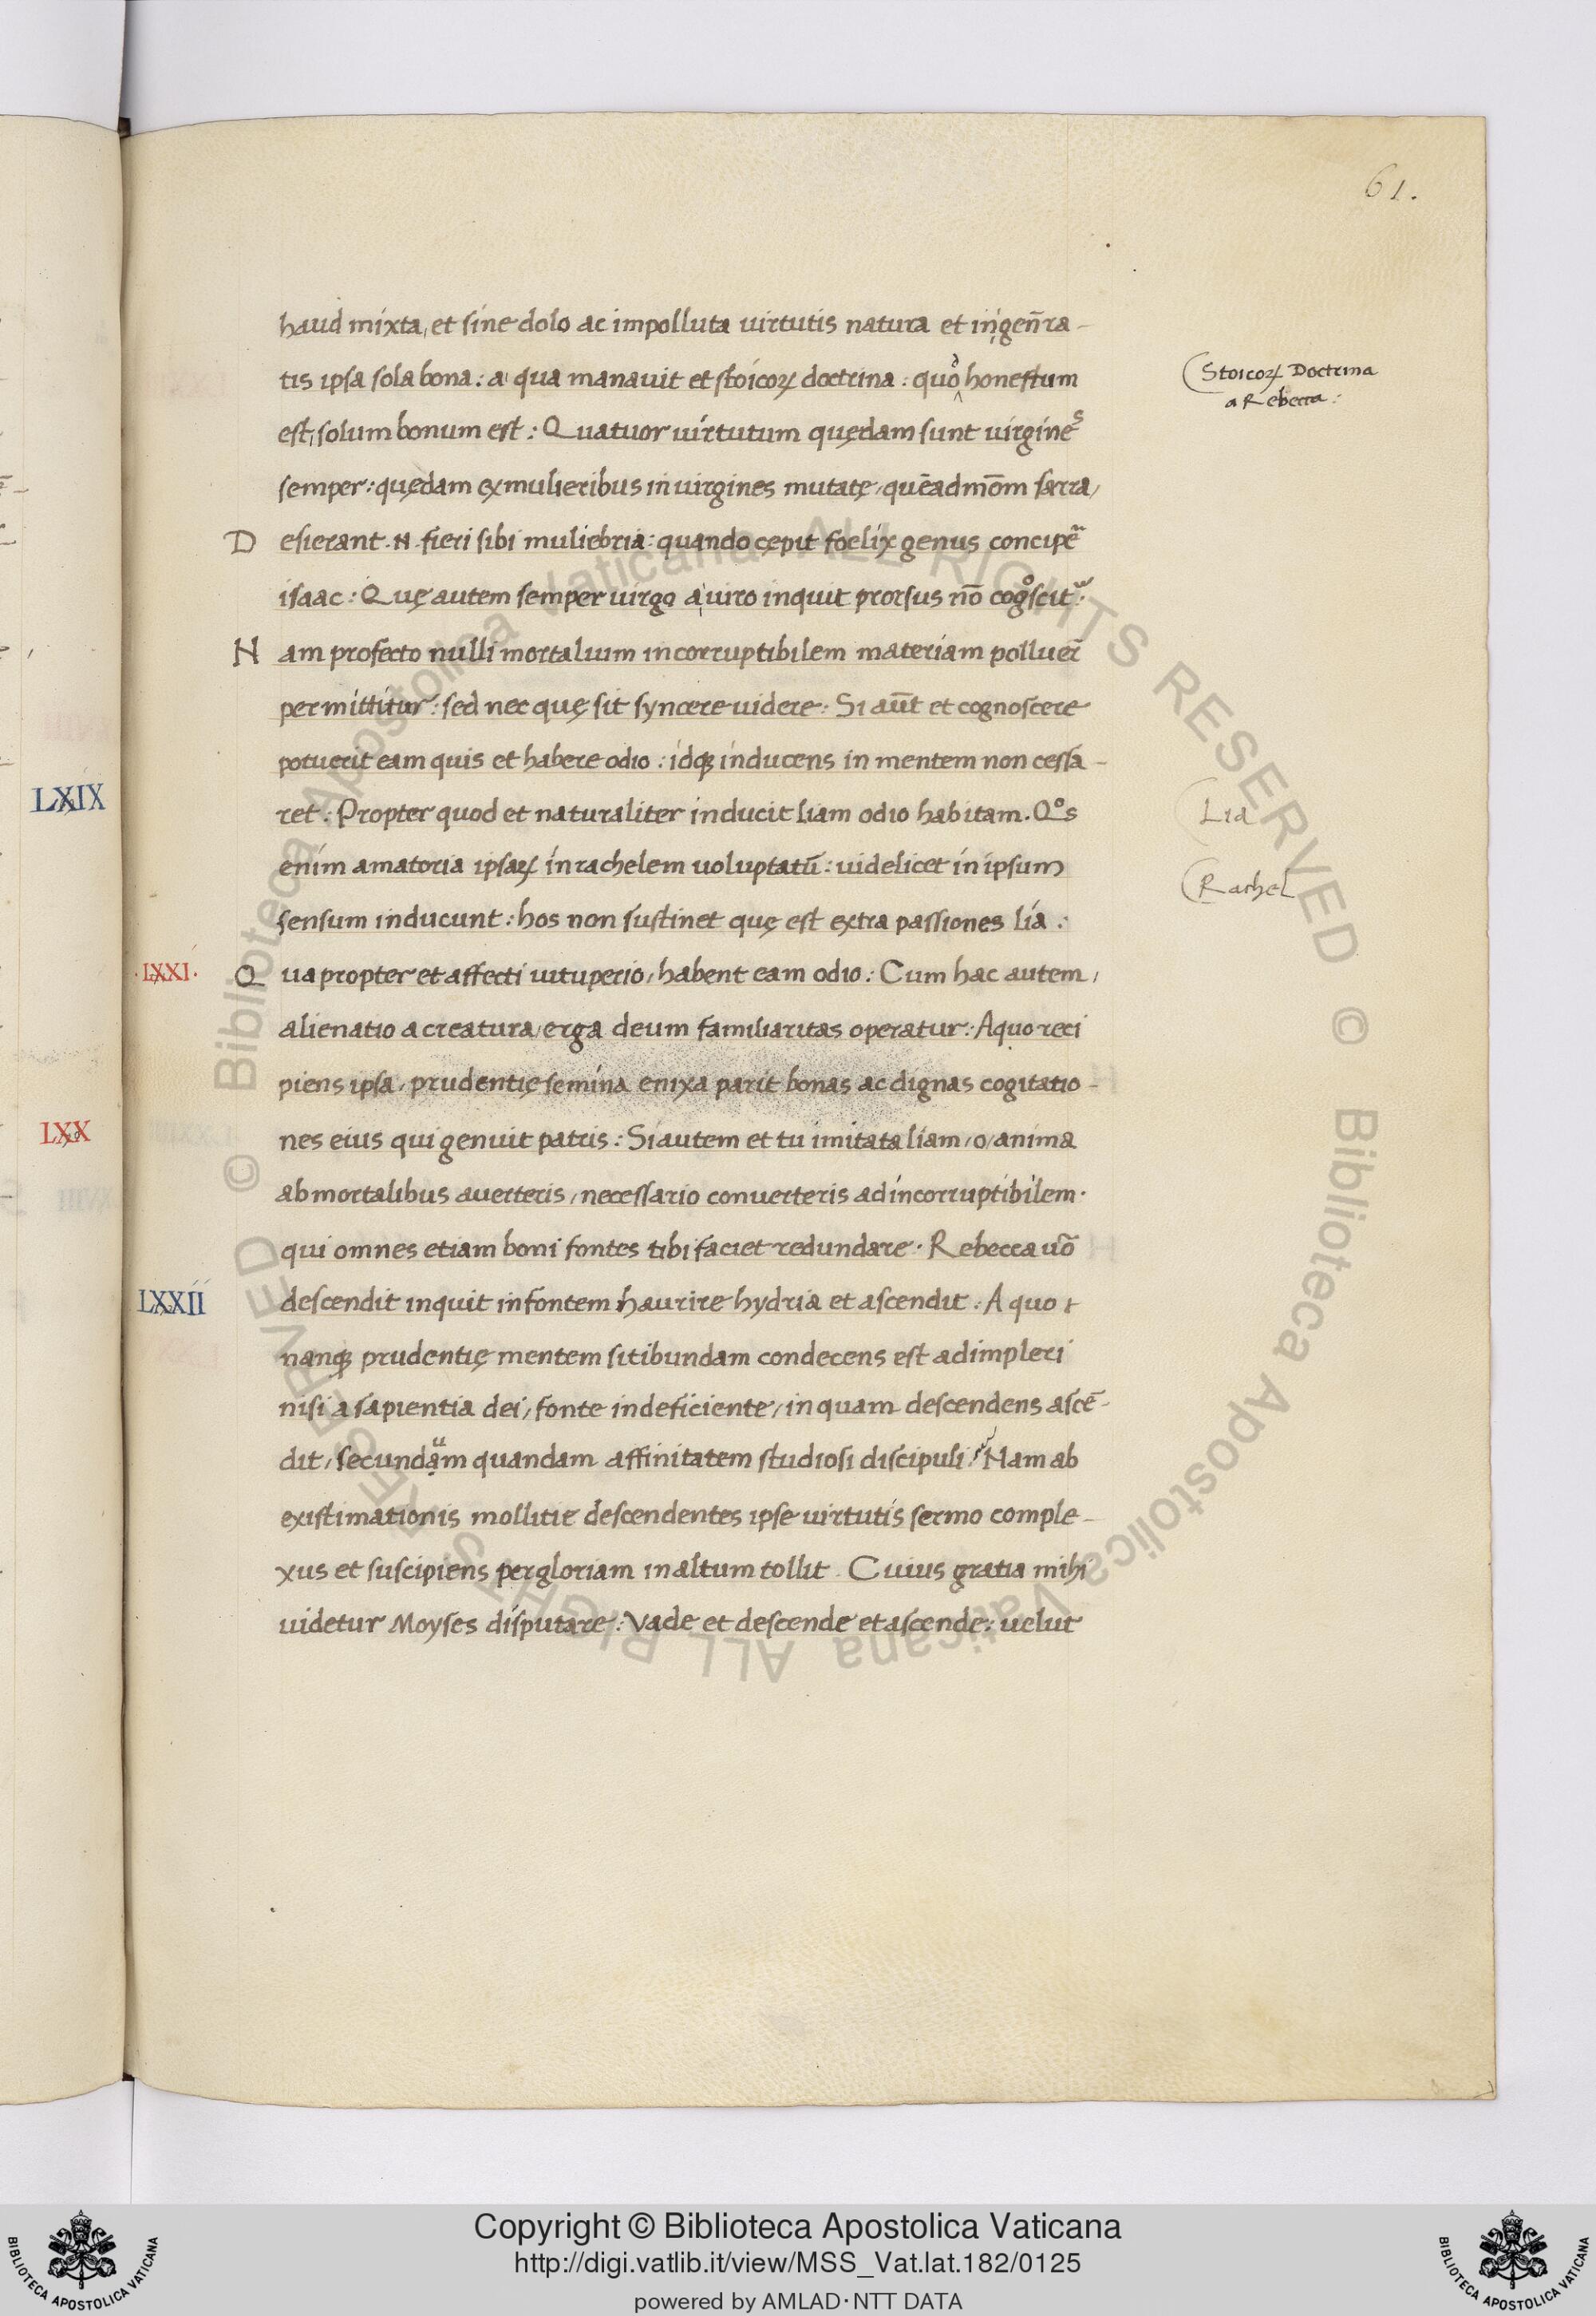 61.
haud mixta, et sine dolo ac impolluta uirtutis natura et ingen̄ra-
tis ipsa sola bona: a qua manauit et stoicoꝝ doctrina: quō honestum
Stoicoꝝ Doctrina
a Rebecca:
est, solum bonum est: Quatuor uirtutum quędam sunt uirgines
semper: quędam ex mulieribus in uirgines mutatę, quēadmōm sarra,
Desierant .N. fieri sibi muliebria: quando cępit foelix genus concipe᷑
isaac: Quę autem semper uirgo a uiro inquit prorsus nō cogͦscit᷑:
Nam profecto nulli mortalium incorruptibilem materiam polluer̄
permittitur: sed nec quę sit syncere uidere: Si aūt et cognoscere
potuerit eam quis et habere odio: idqꝫ inducens in mentem non cessa-
LXIX
ret: Propter quod et naturaliter inducit liam odio habitam. Qͦs
Lia
enim amatoria ipsaꝝ in rachelem uoluptatū: uidelicet in ipsum
Rachel
sensum inducunt: hos non sustinet quę est extra passiones lia:
.LXXI.
Quapropter et affecti uituperio, habent eam odio: Cum hac autem,
alienatio a creatura, erga deum familiaritas operatur: A quo reci
piens ipsa, prudentię semina enixa parit bonas ac dignas cogitatio-
LXX
nes eius qui genuit patris: Si autem et tu imitata liam, o, anima
ab mortalibus auerteris, necessario conuerteris ad incorruptibilem.
qui omnes etiam boni fontes tibi faciet redundare. Rebecca uō
LXXII
descendit inquit in fontem haurire hydria et ascendit: A quo
nanqꝫ prudentię mentem sitibundam condecens est adimpleri
nisi a sapientia dei, fonte indeficiente, in quam descendens ascē-
dit, secundum quandam affinitatem studiosi discipuli: Nam ab
existimationis mollitie descendentes ipse uirtutis sermo comple-
xus et suscipiens per gloriam in altum tollit. Cuius gratia mihi
uidetur Moyses disputare: Vade et descende et ascende: uelut
© Biblioteca Apostolica Vaticana ALL RIGHTS RESERVED © Biblioteca Apostolica Vaticana ALL RIGHTS RESERVED
Copyright © Biblioteca Apostolica Vaticana
http://digi.vatlib.it/view/MSS_Vat.lat.182/0125
powered by AMLAD·NTT DATA
BIBLIOTECA APOSTOLICA VATICANA
BIBLIOTECA APOSTOLICA VATICANA